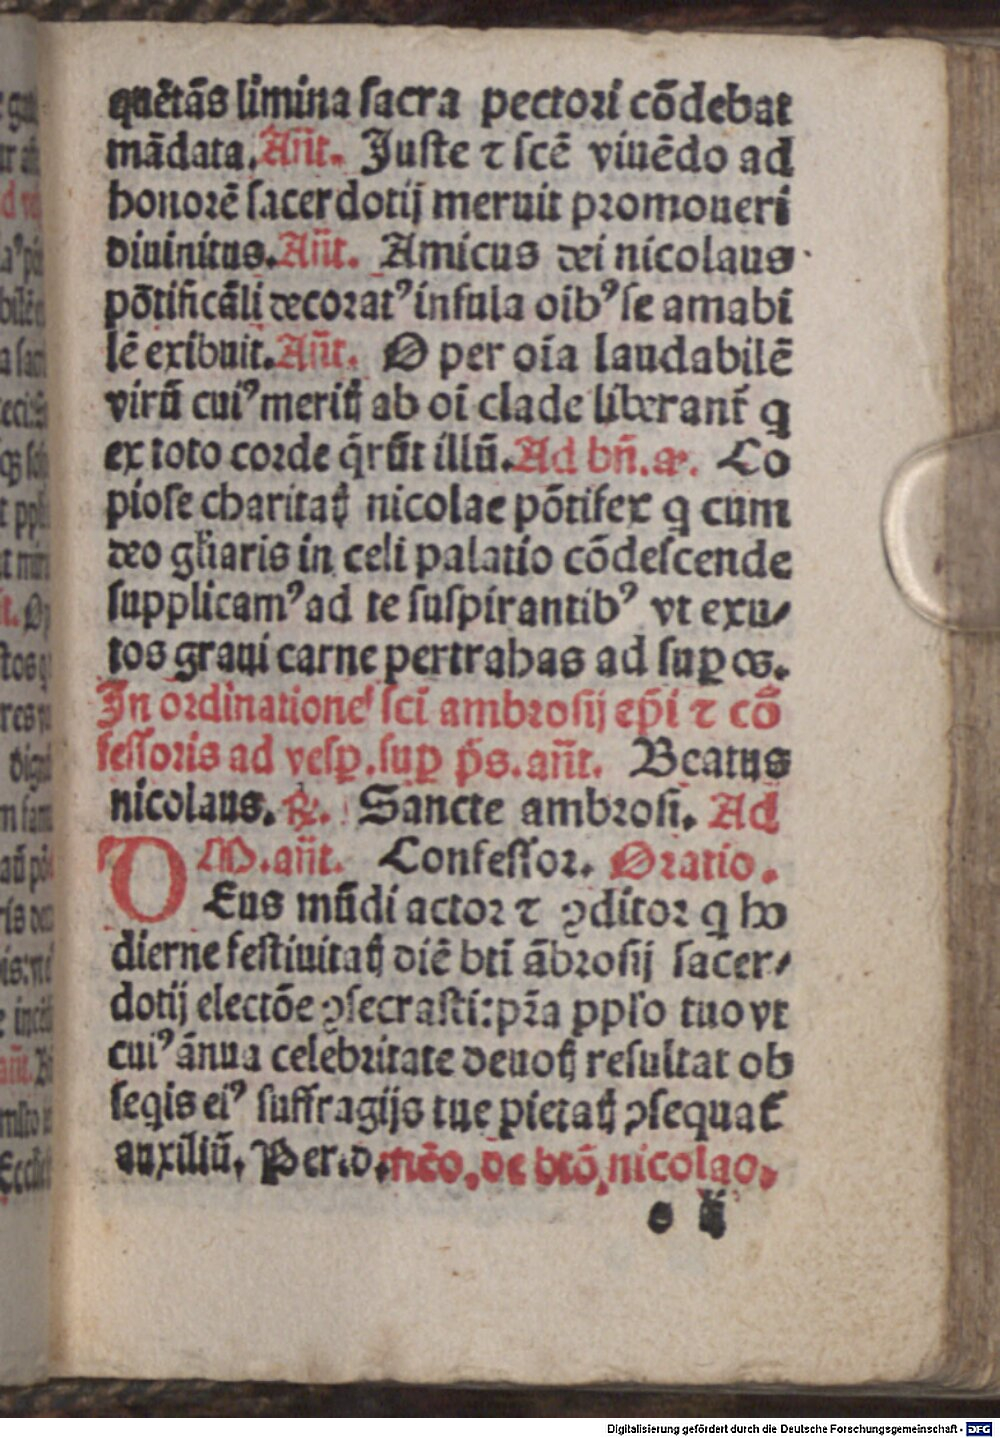 quētās limina sacra pectori cōdebat
mādata. Añt. Juste ⁊ scē viuēdo ad
honorē sacerdotij meruit promoueri
diuinitus. Añt. Amicus dei nicolaus
pōtificāli decoratꝰ infula oibꝰ se amabi
lē exibuit. Añt. O per oīa laudabilē
virū cuiꝰ meritꝭ ab oī clade liberant̄ q
ex toto corde q̄rūt illū. Ad bñ. añ. Co
piose charitatꝭ nicolae pōtifex q cum
deo gl̄iaris in celi palatio cōdescende
supplicamꝰ ad te suspirantibꝰ vt exu/
tos graui carne pertrahas ad suꝑos.
In ordinatione sci ambrosij ep̄i ⁊ cō
fessoris ad vesꝑ. suꝑ p̄s. añt. Beatus
nicolaus. ℟. Sancte ambrosi. Ad
M. añt. Confessor. Oratio.
DEus mūdi actor ⁊ ꝯditor q ho
dierne festiuitatꝭ diē bti ābrosij sacer/
dotij electōe ꝯsecrasti: p̄ra pplo tuo vt
cuiꝰ ānua celebritate deuotꝭ resultat ob
seqis eiꝰ suffragijs tue pietatꝭ ꝯsequat̄
auxiliū. Per. d. mēo. de btō nicolao.
o ij
Digitalisierung gefördert durch die Deutsche Forschungsgemeinschaft - DFG